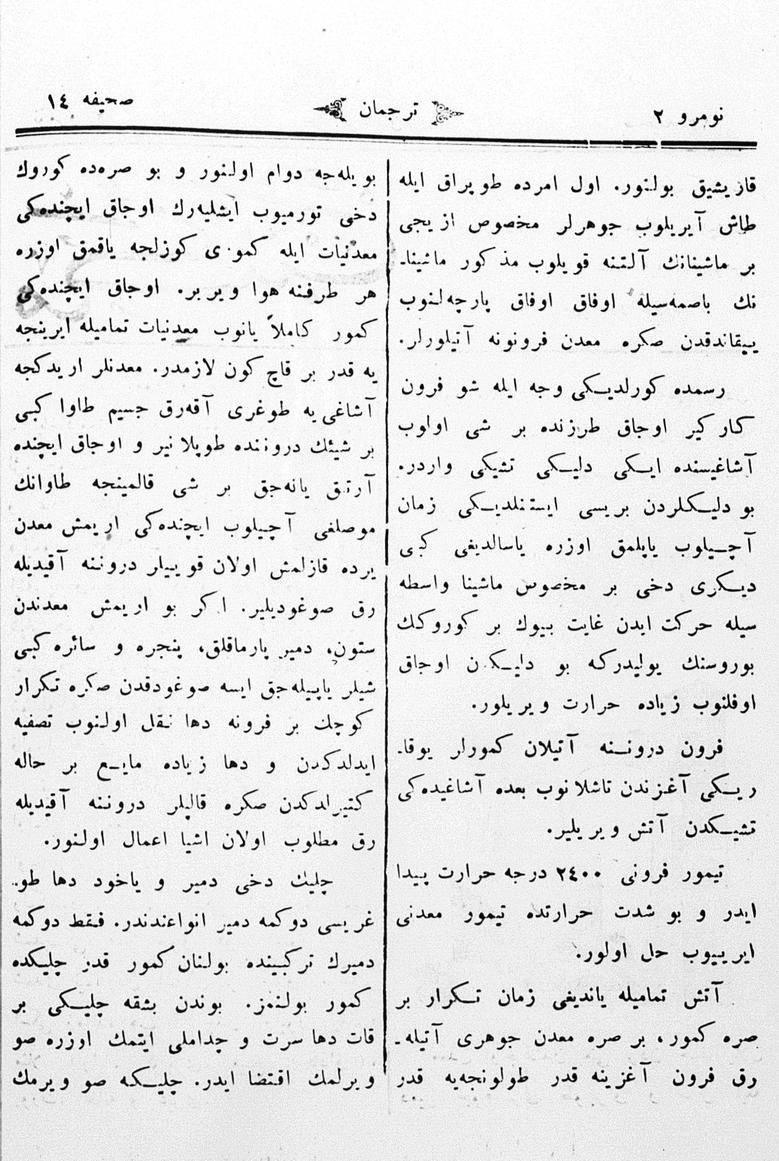 نومرو ٢
ترجمان
صحيفه ١٤
قاريشيق بولنور. اول امرده طوپراق ايله
طاش آيريلوب جوهرلر مخصوص ازيجى
بر ماشينانك آلتنه قويلوب مذكور ماشينا-
نك باصمه‌سيله اوفاق اوفاق پارچه‌لنوب
ييقاندقدن صكره معدن فرونونه آتيلورلر.
رسمده كورلديكى وجه ايله شو فرون
كاركير اوجاق طرزنده بر شى اولوب
آشاغيسنده ايكى دليكى تشيكى واردر.
بو دليكلردن بريسى ايستنلديكى زمان
آچيلوب ياپلمق اوزره ياسالديغى كبى
ديكرى دخى بر مخصوص ماشينا واسطه
سيله حركت ايدن غايت بيوك بر كوروكك
بوروسنك يوليدركه بو دليكدن اوجاق
اوفلنوب زياده حرارت ويريلور.
فرون دروننه آتيلان كمورلر يوقا-
ريكى آغزندن تاشلانوب بعده آشاغيده‌كى
تشيكدن آتش ويريلير.
تيمور فرونى ٢٤٠٠ درجه حرارت پيدا
ايدر و بو شدت حرارتده تيمور معدنى
ايرييوب حل اولور.
آتش تماميله يانديغى زمان تكرار بر
صره كمور، بر صره معدن جوهرى آتيله-
رق فرون آغزينه قدر طولونجه‌يه قدر
بويله‌جه دوام اولنور و بو صره‌ده كوروك
دخى تورميوب ايشليه‌رك اوجاق ايچنده‌كى
معدنيات ايله كمورى كوزلجه ياقمق اوزره
هر طرفنه هوا ويرير. اوجاق ايچنده‌كى
كمور كاملاً يانوب معدنيات تماميله ايرينجه
يه قدر بر قاچ كون لازمدر. معدنلر اريدكجه
آشاغى يه طوغرى آقه‌رق جسيم طاوا كبى
بر شيئك دروننده طوپلانير و اوجاق ايچنده
آرتق يانه‌جق بر شى قالمينجه طاوانك
موصلغى آچيلوب ايچنده‌كى اريمش معدن
يرده قازلمش اولان قوييلر دروننه آقيديله
رق صوغوديلير. اكر بو اريمش معدندن
ستون، دمير پارماقلق، پنجره و سائره كبى
شيلر ياپيله‌جق ايسه صوغودقدن صكره تكرار
كوچك بر فرونه دها نقل اولنوب تصفيه
ايدلدكدن و دها زياده مايع بر حاله
كتيرلدكدن صكره قالبلر دروننه آقيديله
رق مطلوب اولان اشيا اعمال اولنور.
چليك دخى دمير و ياخود دها طو-
غريسى دوكمه دمير انواعندندر. فقط دوكمه
دميرك تركيبنده بولنان كمور قدر چليكده
كمور بولنمز. بوندن بشقه چليكى بر
قات دها سرت و چداملى ايتمك اوزره صو
ويرلمك اقتضا ايدر. چليكه صو ويرمك